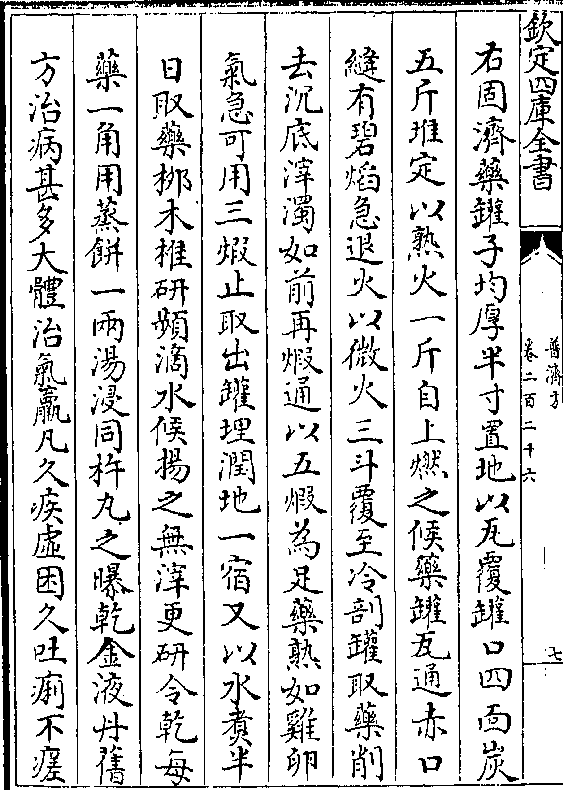 欽定四庫全書
普濟方
卷二百二十六
七
右固濟藥罐子均厚半寸置地以瓦覆罐口四面炭
五斤堆定以熟火一斤自上燃之候藥罐瓦通赤口
縫有碧焰急退火以微火三斗覆至冷剖罐取藥削
去沉底滓濁如前再煅通以五煅為足藥熟如雞卵
氣急可用三煅止取出罐埋潤地一宿又以水煑半
日取藥栁木椎研頻滴水候揚之無滓更研令乾每
藥一角用蒸餅一兩湯浸同杵丸之曝乾金液丹舊
方治病甚多大體治氣羸凡久疾虛困久吐痢不瘥